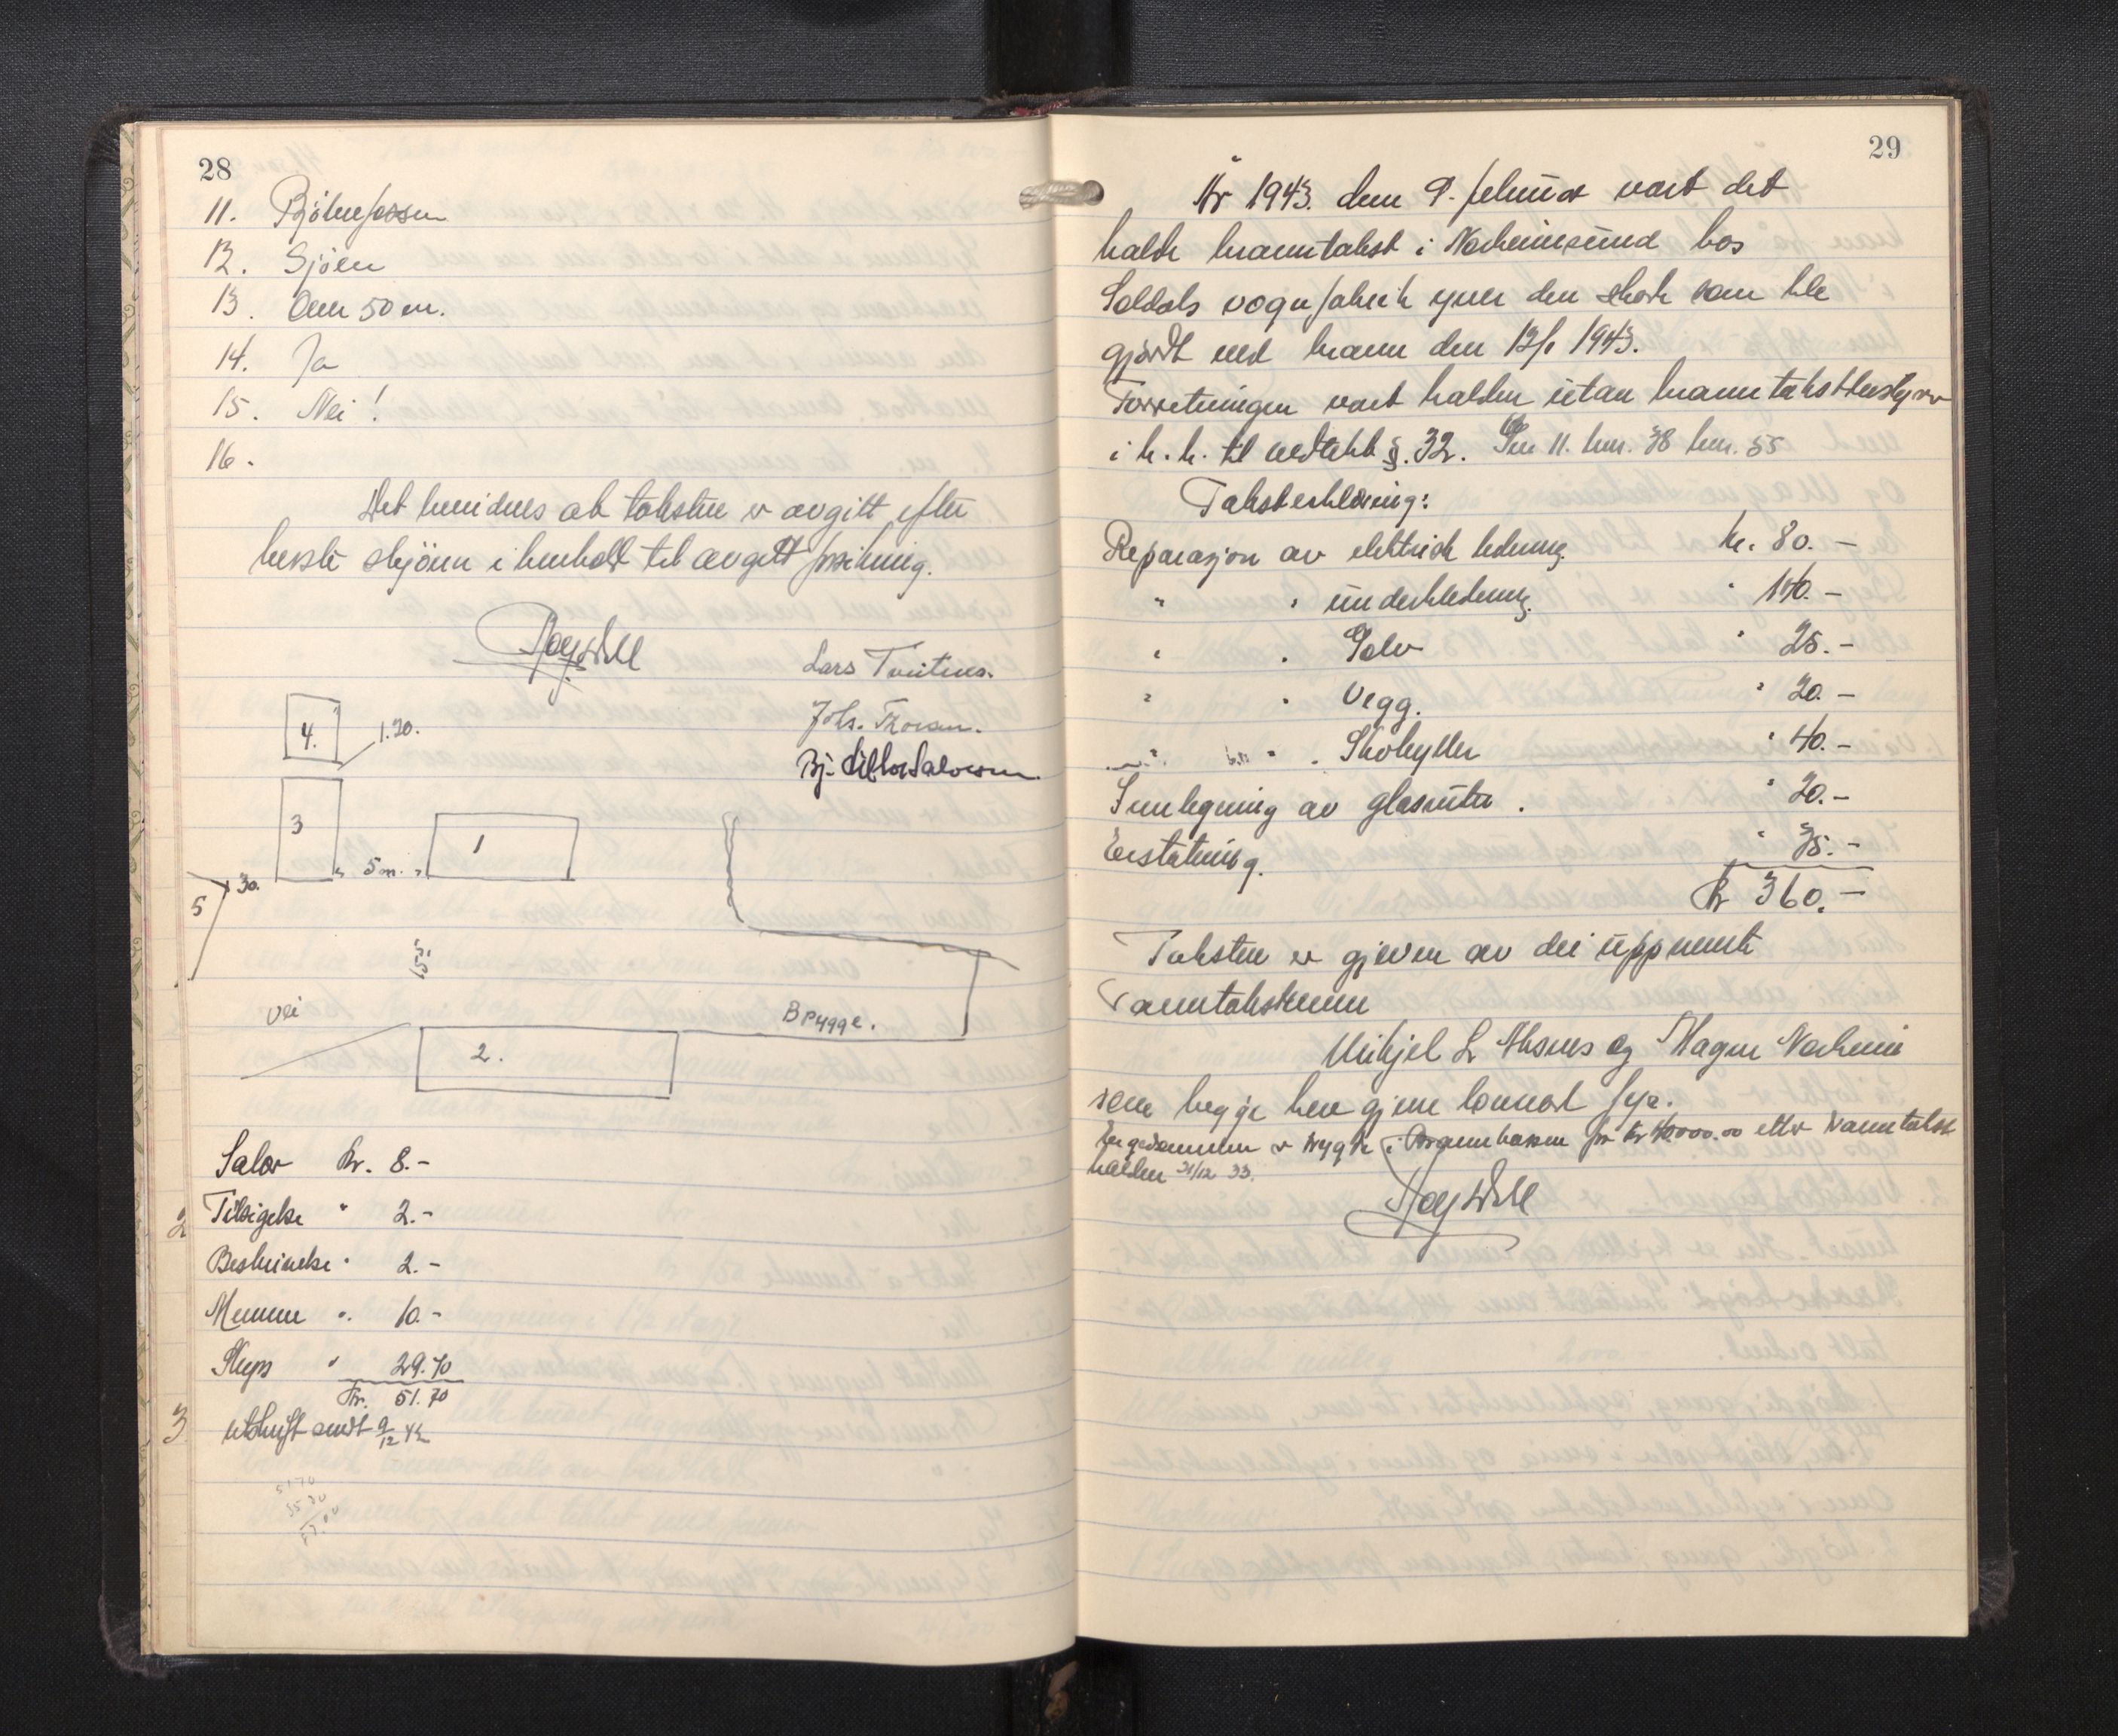 28
11. Bjölsefossen
12. Sjöen
13. Over 50 m.
14. Ja
15. Nei!
16.
Det bevidnes at taksten er avgitt efter
beste skjönn i henhold til avgitt forsikring.
Lars Tveitnes.
Johs. Thorsen.
4.
1.20.
3
1
5 m.
5
30.
15
Vei
Brygge.
2.
Salær kr. 8.-
Tilsigelse " 2.-
Beskrivelse " 2.-
Mennene " 10.-
Skyss " 29.70
Kr. 51.70
Utskrift sendt 9/12 42
2
3
29
År 1943. den 9. februar vart det
halde branntakst i Norheimsund hos
Soldals vognfabrik yver den skade som ble
gjordt ved brann den 12/1 1943.
Forretningen vart halden utan branntakstbestyrar
i h.h. til vedtekt §. 32. Sjå 11. bnr. 38 bnr. 55
Taksterklæring:
Reparasjon av elektrisk ledning kr. 80.-
" " underkledning " 140.-
" " Golv " 25.-
" " Vegg. " 20.-
" " Skohyller " 40.-
Innlegning av glasruter. " 20.-
Erstatning. " 35.-
Kr 360.-
Taksten er gjeven av dei uppnemnde
branntakstmenn
Mikjel L Aksnes og Magne Norheim
som begge hev gjeve lovnad fyr.
Eigedommen er trygda i Brannkassen for kr 40000.00 etter branntakst
halden 31/12 33.